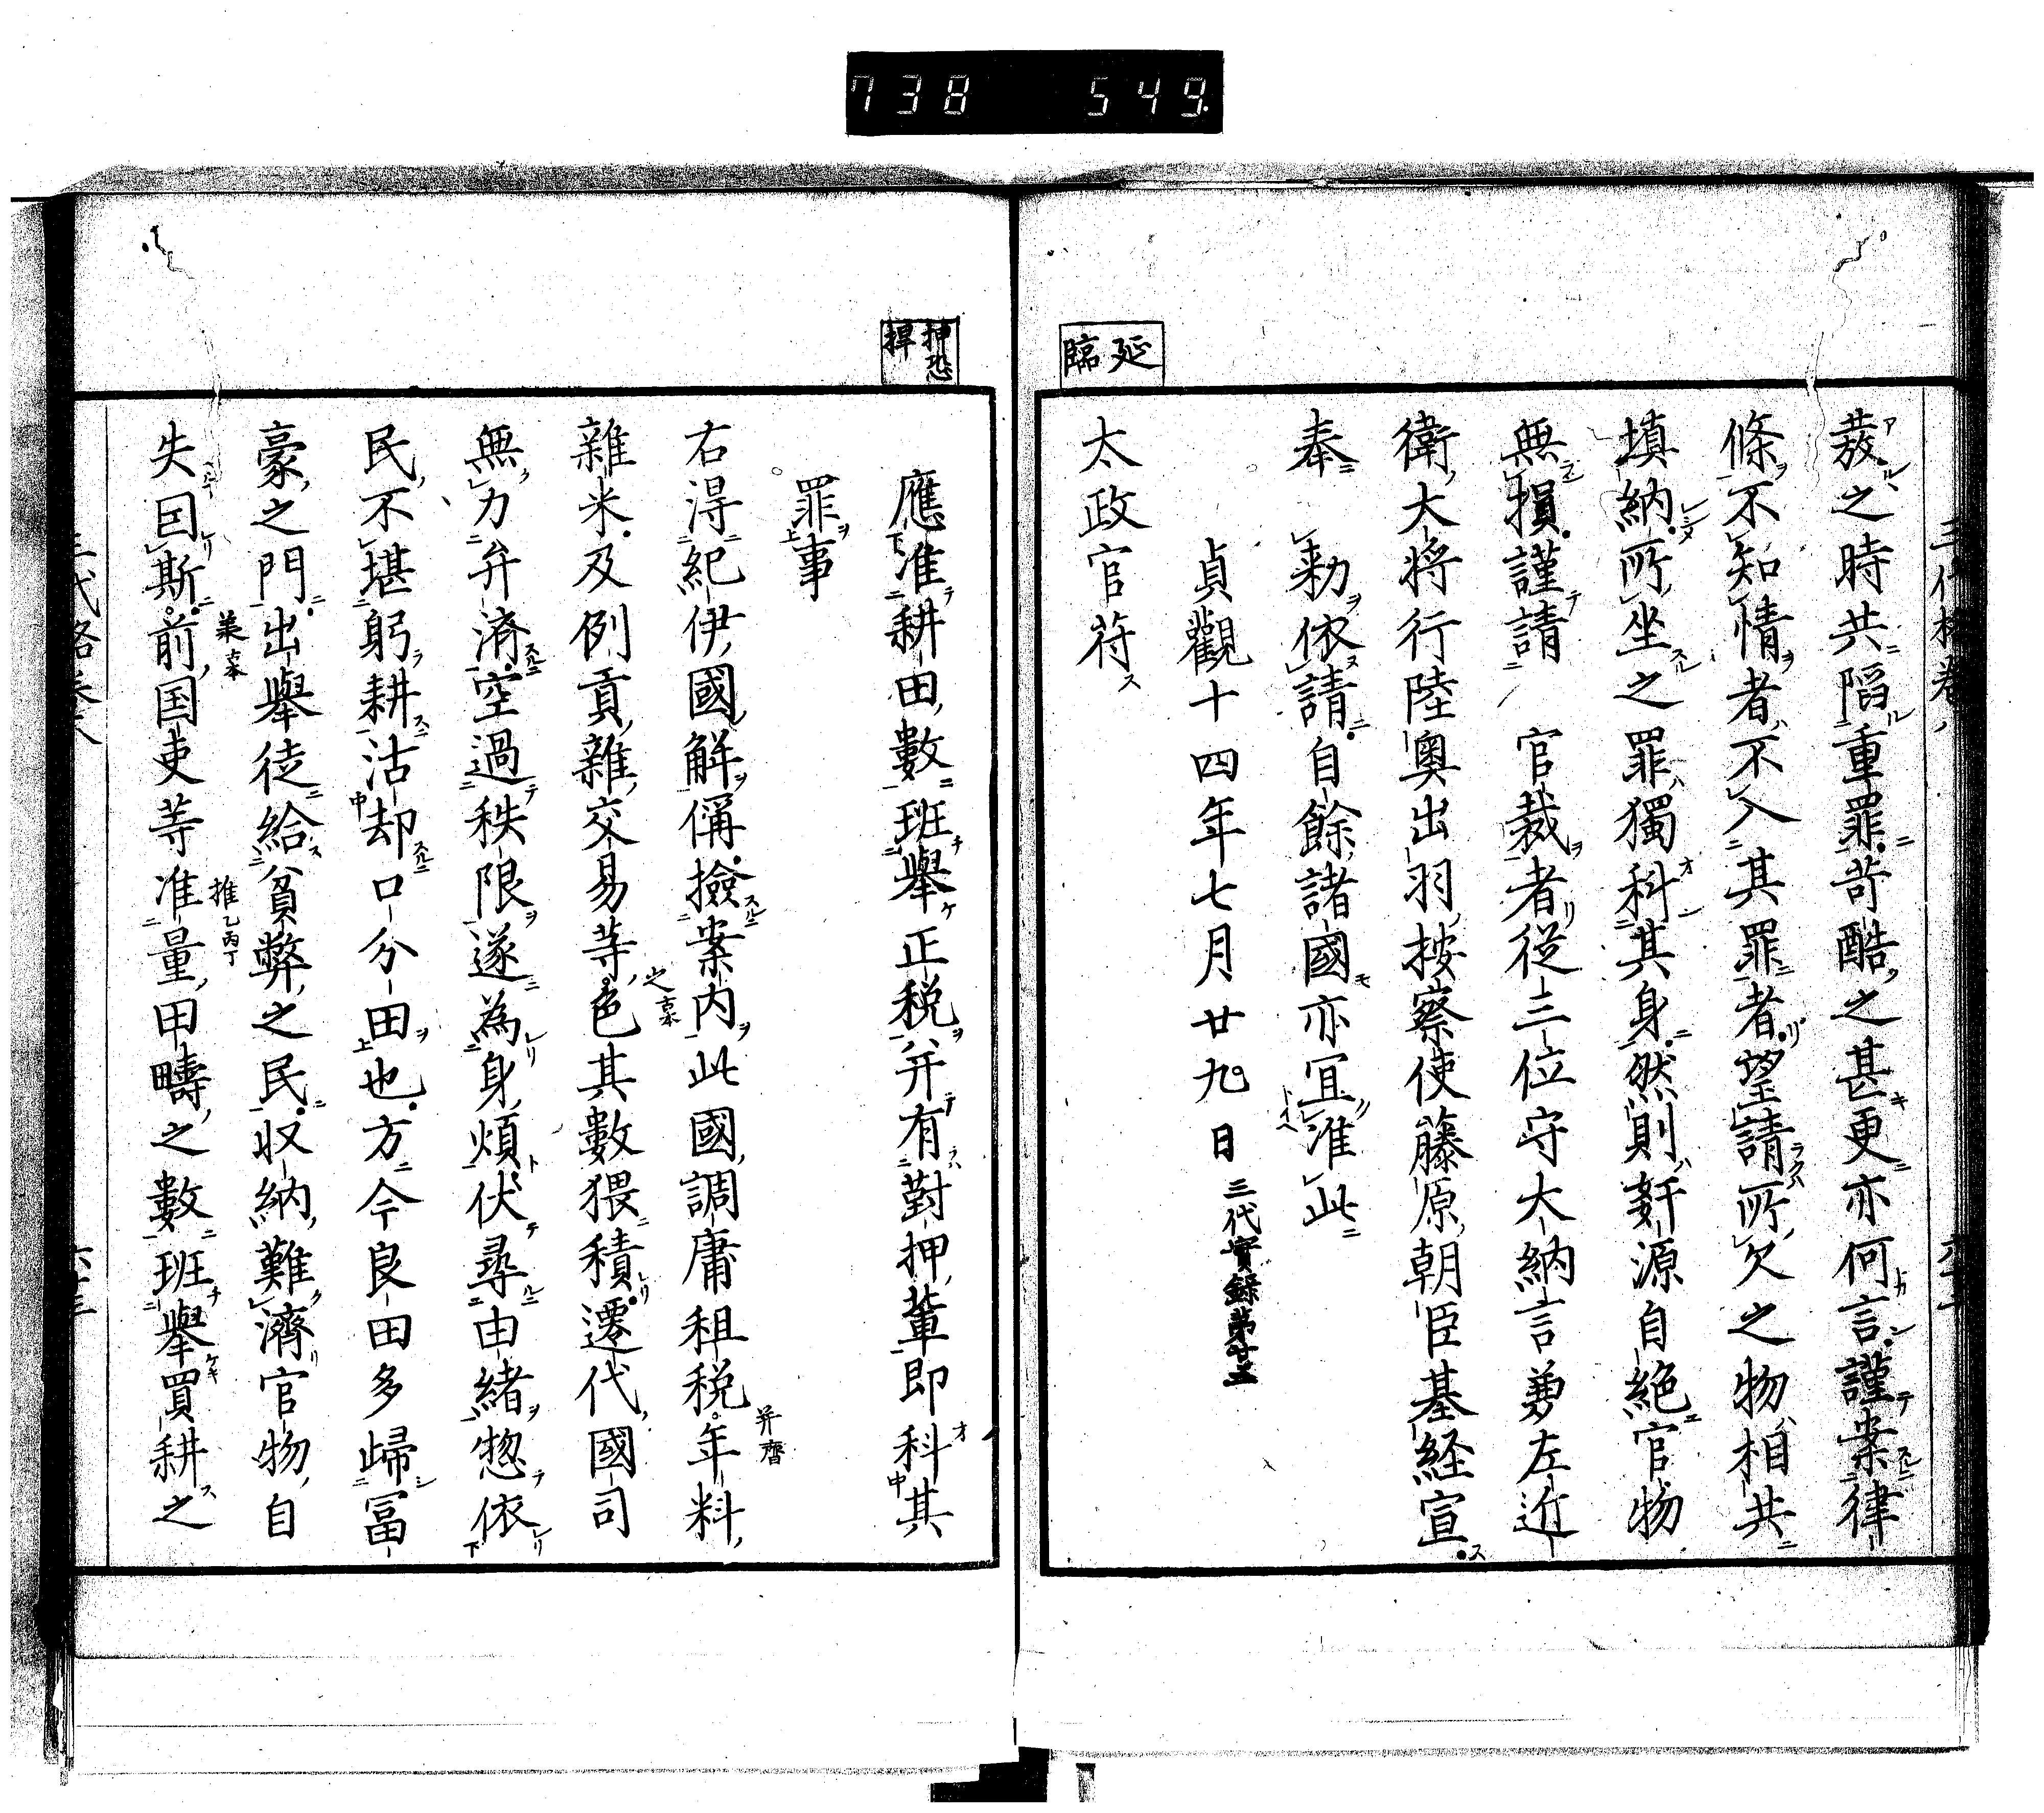 738 549
延
臨
發之時共陷重罪苛酷之甚更亦何言謹案律
條不知情者不入其罪者望請所欠之物相共
填納所坐之罪獨科其身然則姧源自絶官物
無損謹請 官裁者從三位守大納言兼左近
衛大将行陸奥出羽按察使藤原朝臣基経宣
奉 勅依請自餘諸國亦宜准此
貞觀十四年七月廿九日 三代實録第廿二
太政官符
押恐
捍
應准耕田數班舉正税并有對押輩即科其
罪事
右得紀伊國解偁撿案内此國調庸租税年料
并齊
雜米及例貢雜交易等色其數猥積遷代國司
之古本
無力弁濟空過秩限遂為身煩伏尋由緒惣依
民不堪躬耕沽却口分田也方今良田多歸冨
豪之門出舉徒給貧弊之民収納難濟官物自
失囙斯前国吏等准量甲疇之數班舉買耕之
葉古本
推乙丙丁